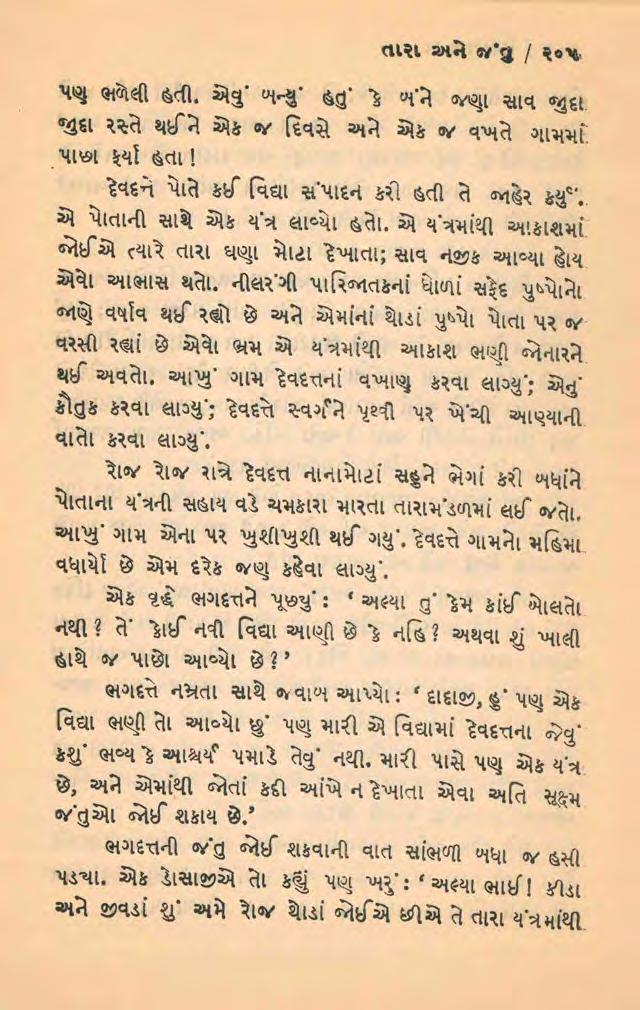 તારા અને જંતુ / ૨૦૫
પણ ભળેલી હતી. એવું બન્યું હતું કે બંને જણા સાવ જુદા
જુદા રસ્તે થઈને એક જ દિવસે અને એક જ વખતે ગામમાં
પાછા ફર્યા હતા!
દેવદત્તે પોતે કઈ વિદ્યા સંપાદન કરી હતી તે જાહેર કર્યું.
એ પોતાની સાથે એક યંત્ર લાવ્યો હતો. એ યંત્રમાંથી આકાશમાં
જોઈએ ત્યારે તારા ઘણા મોટા દેખાતા; સાવ નજીક આવ્યા હોય
એવો આભાસ થતો. નીલરંગી પારિજાતકનાં ધોળાં સફેદ પુષ્પોનો
જાણે વર્ષાવ થઈ રહ્યો છે અને એમાંનાં થોડાં પુષ્પો પોતા પર જ
વરસી રહ્યાં છે એવો ભ્રમ એ યંત્રમાંથી આકાશ ભણી જોનારને
થઈ અવતો. આખું ગામ દેવદત્તનાં વખાણ કરવા લાગ્યું; એનું
કૌતુક કરવા લાગ્યું; દેવદત્તે સ્વર્ગને પૃથ્વી પર ખેંચી આણ્યાની
વાતો કરવા લાગ્યું.
રોજ રોજ રાત્રે દેવદત્ત નાનામોટાં સહુને ભેગાં કરી બધાંને
પોતાના યંત્રની સહાય વડે ચમકારા મારતા તારામંડળમાં લઈ જતો.
આખું ગામ એના પર ખુશીખુશી થઈ ગયું. દેવદત્તે ગામનો મહિમા
વધાર્યો છે એમ દરેક જણ કહેવા લાગ્યું.
એક વૃદ્ધે ભગદત્તને પૂછ્યું : ‘અલ્યા તું કેમ કાંઈ બોલતો
નથી? તેં કોઈ નવી વિદ્યા આણી છે કે નહિ? અથવા શું ખાલી
હાથે જ પાછો આવ્યો છે?’
ભગદત્તે નમ્રતા સાથે જવાબ આપ્યો : ‘દાદાજી, હું પણ એક
વિદ્યા ભણી તો આવ્યો છું પણ મારી એ વિદ્યામાં દેવદત્તના જેવું
કશું ભવ્ય કે આશ્ચર્ય પમાડે તેવું નથી. મારી પાસે પણ એક યંત્ર
છે, અને એમાંથી જોતાં કદી આંખે ન દેખાતા એવા અતિ સૂક્ષ્મ
જંતુઓ જોઈ શકાય છે.’
ભગદત્તની જંતુ જોઈ શકવાની વાત સાંભળી બધા જ હસી
પડ્યા. એક ડોસાજીએ તો કહ્યું પણ ખરું : ‘અલ્યા ભાઈ! કીડા
અને જીવડાં શું અમે રોજ થોડાં જોઈએ છીએ તે તારા યંત્રમાંથી